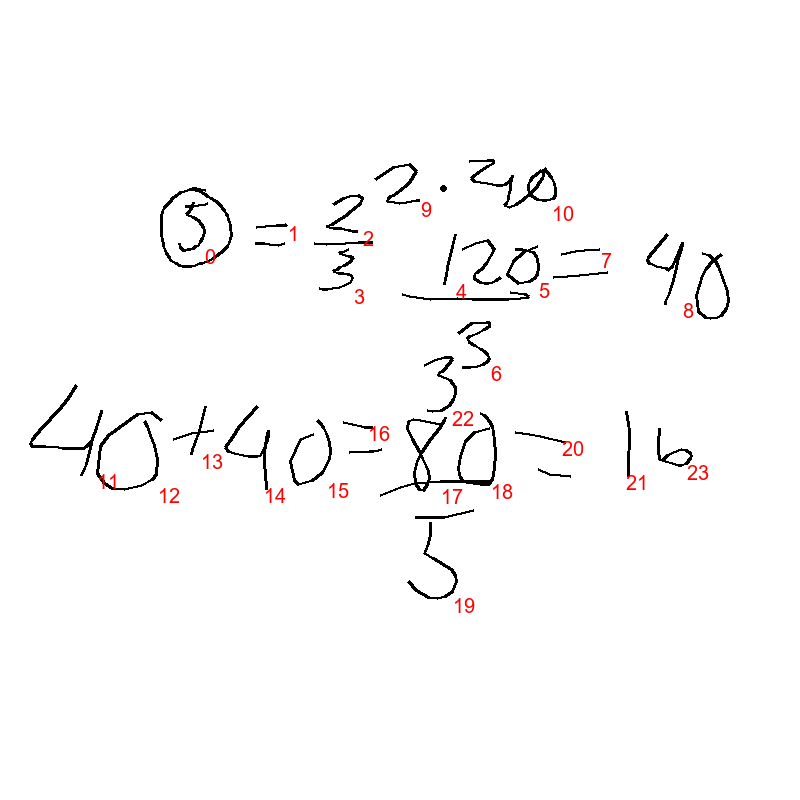 2 · 40
5 = 2/3 120/3 = 40
3
40 + 40 = 80/5 = 16
0 1 2 3 4 5 6 7 8 9 10 11 12 13 14 15 16 17 18 19 20 21 22 23